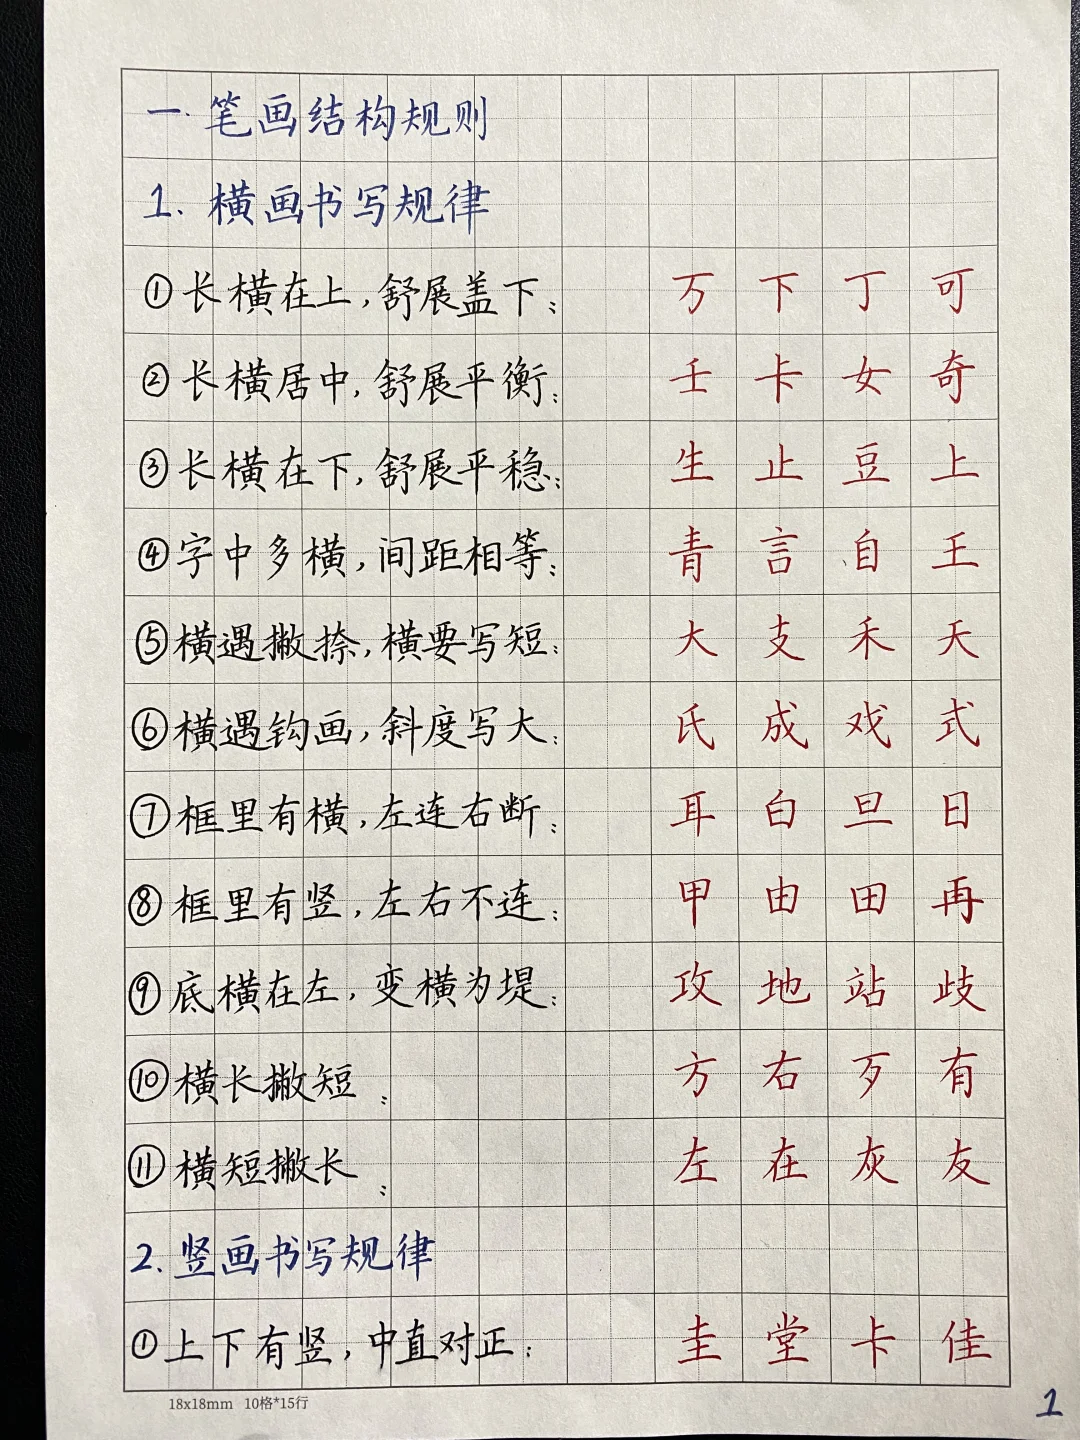 一.笔画结构规则
1.横画书写规律
①长横在上,舒展盖下; 万 下 丁 可
②长横居中,舒展平衡; 壬 卡 女 奇
③长横在下,舒展平稳; 生 止 豆 上
④字中多横,间距相等; 青 言 自 王
⑤横遇撇捺,横要写短; 大 支 禾 天
⑥横遇钩画,斜度写大; 氏 成 戏 式
⑦框里有横,左连右断; 耳 白 旦 日
⑧框里有竖,左右不连; 甲 由 田 再
⑨底横在左,变横为堤; 攻 地 站 歧
⑩横长撇短; 方 右 歹 有
⑪横短撇长; 左 在 灰 友
2.竖画书写规律
①上下有竖,中直对正; 圭 堂 卡 佳
18x18mm 10格*15行
1